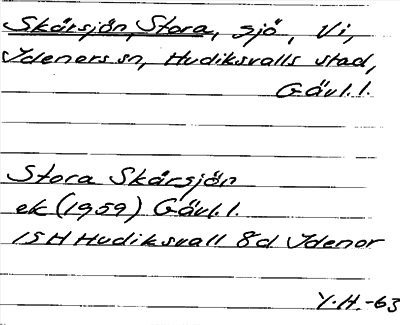 Skårsjön, Stora, sjö, Vi,
Idenors sn, Hudiksvalls stad,
Gävl.l.
Stora Skårsjön
ek (1959) Gävl.l.
15H Hudiksvall 8d Idenor
Y.H.-63